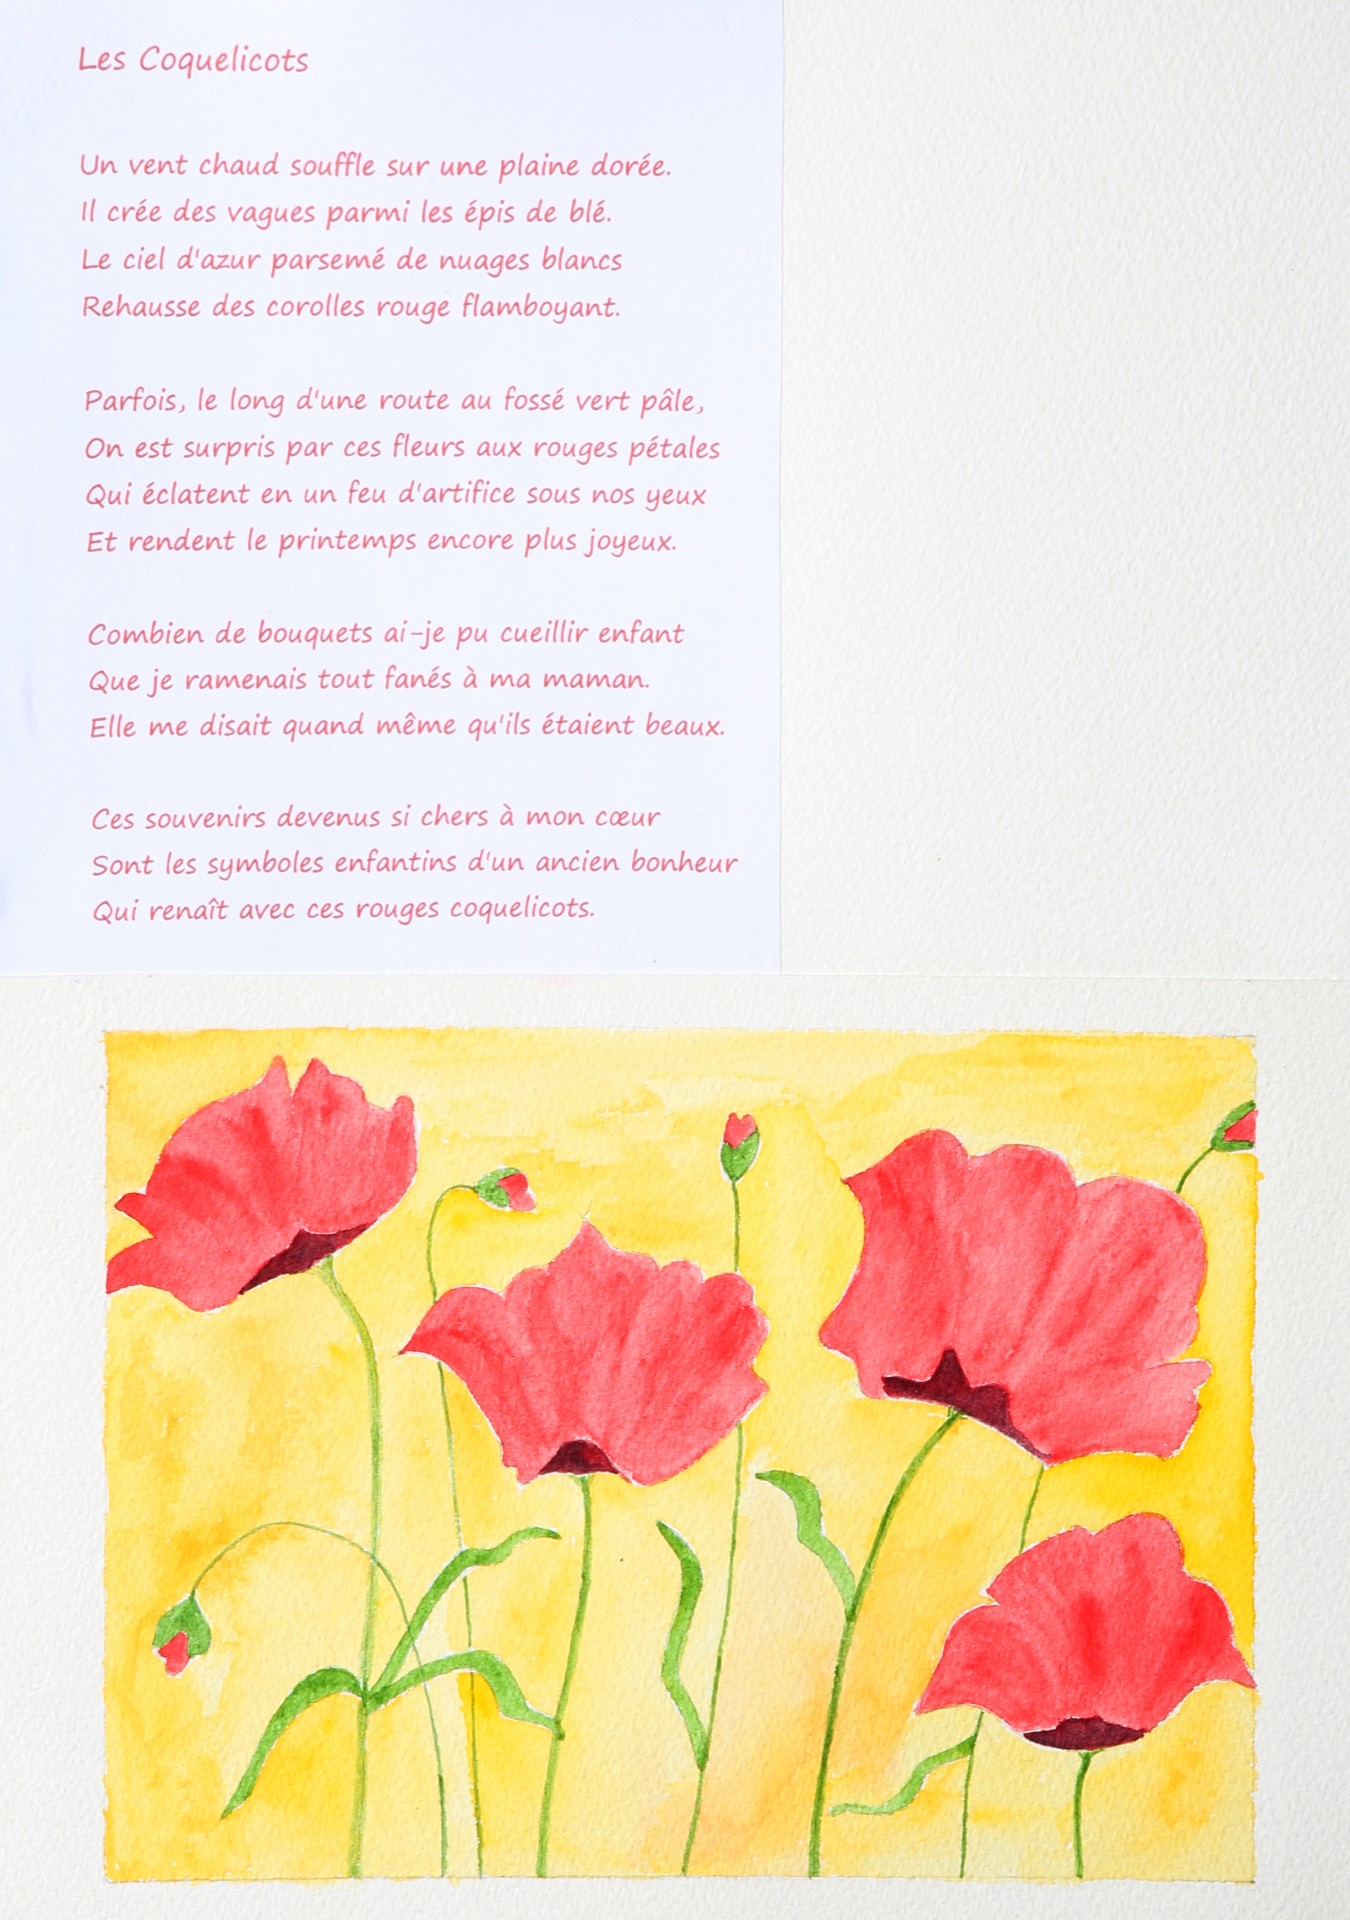 Les Coquelicots
Un vent chaud souffle sur une plaine dorée.
Il crée des vagues parmi les épis de blé.
Le ciel d'azur parsemé de nuages blancs
Rehausse des corolles rouge flamboyant.
Parfois, le long d'une route au fossé vert pâle,
On est surpris par ces fleurs aux rouges pétales
Qui éclatent en un feu d'artifice sous nos yeux
Et rendent le printemps encore plus joyeux.
Combien de bouquets ai-je pu cueillir enfant
Que je ramenais tout fanés à ma maman.
Elle me disait quand même qu'ils étaient beaux.
Ces souvenirs devenus si chers à mon cœur
Sont les symboles enfantins d'un ancien bonheur
Qui renaît avec ces rouges coquelicots.